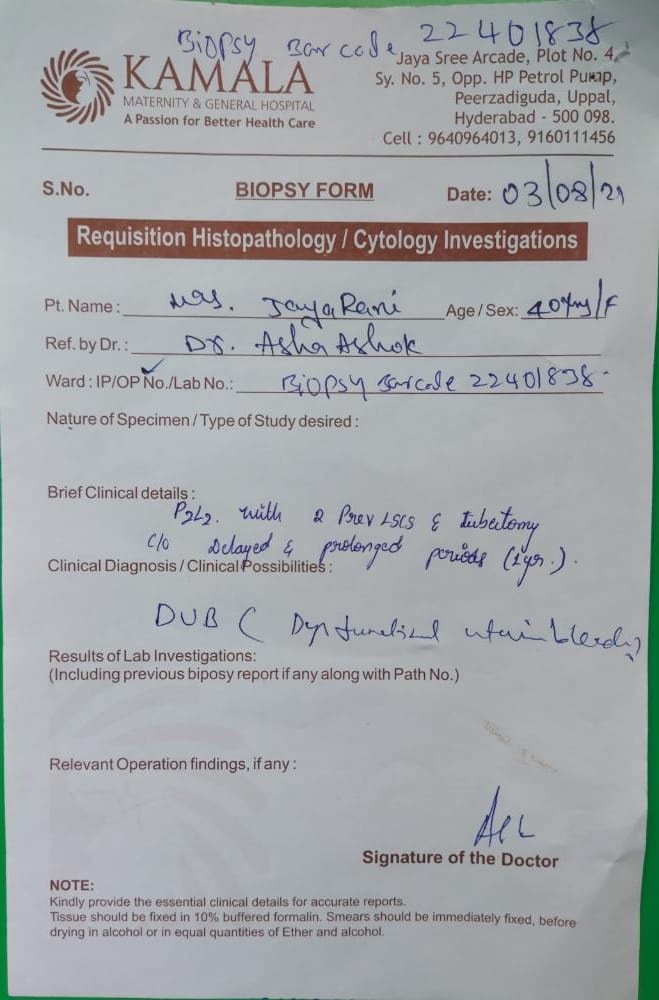 Biopsy Bar code 22401838
KAMALA
MATERNITY & GENERAL HOSPITAL
A Passion for Better Health Care
Jaya Sree Arcade, Plot No. 4,
Sy. No. 5, Opp. HP Petrol Pump,
Peerzadiguda, Uppal,
Hyderabad - 500 098.
Cell : 9640964013, 9160111456
S.No. BIOPSY FORM Date: 03/08/21
Requisition Histopathology / Cytology Investigations
Pt. Name : Mrs. Jaya Rani Age / Sex: 40yrs/F
Ref. by Dr. : Dr. Asha Ashok
Ward : IP/OP No./Lab No.: Biopsy Barcode 22401838
Nature of Specimen / Type of Study desired :
Brief Clinical details :
P2L2. with 2 Prev LSCS & tubectomy
c/o Delayed & prolonged periods (1yr.).
Clinical Diagnosis / Clinical Possibilities :
DUB (
Results of Lab Investigations:
(Including previous biposy report if any along with Path No.)
Relevant Operation findings, if any :
Signature of the Doctor
NOTE:
Kindly provide the essential clinical details for accurate reports.
Tissue should be fixed in 10% buffered formalin. Smears should be immediately fixed, before
drying in alcohol or in equal quantities of Ether and alcohol.